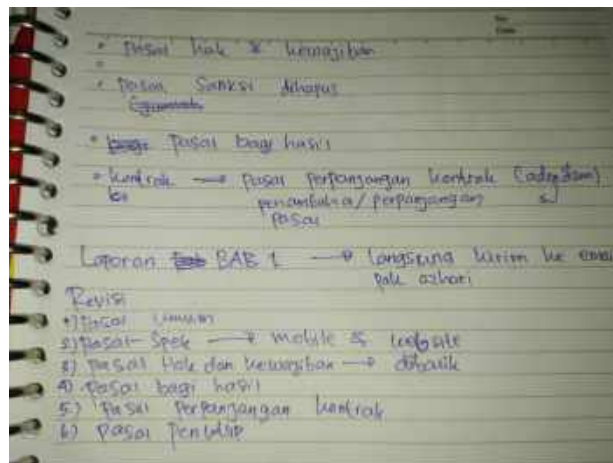 • Pasal Hak & kewajiban
•
• Pasal Sanksi dihapus
• Pasal bagi hasil
• kontrak → Pasal perpanjangan kontrak (adendum)
penambahan/perpanjangan
Pasal
Laporan BAB 1 → langsung kirim ke email
pak azhari
Revisi
1) Pasal umum
2) Pasal - Spek → mobile & website
3) Pasal Hak dan kewajiban → dibalik
4) Pasal bagi hasil
5) Pasal Perpanjangan kontrak
6) Pasal Penutup